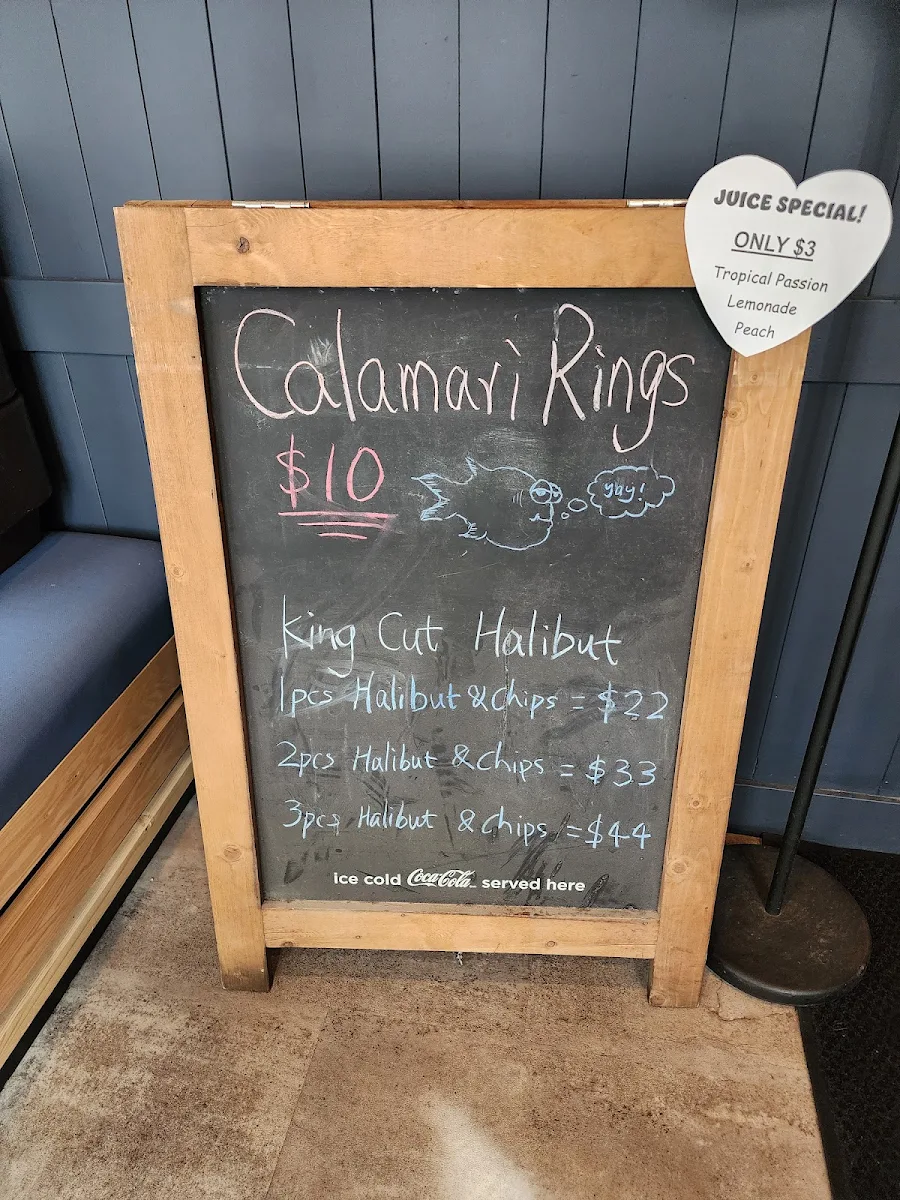 JUICE SPECIAL!
ONLY $3
Tropical Passion
Lemonade
Peach
Calamari Rings
$10
yay!
King Cut Halibut
1pcs Halibut & Chips = $22
2pcs Halibut & Chips = $33
3pcs Halibut & Chips = $44
ice cold Coca-Cola served here